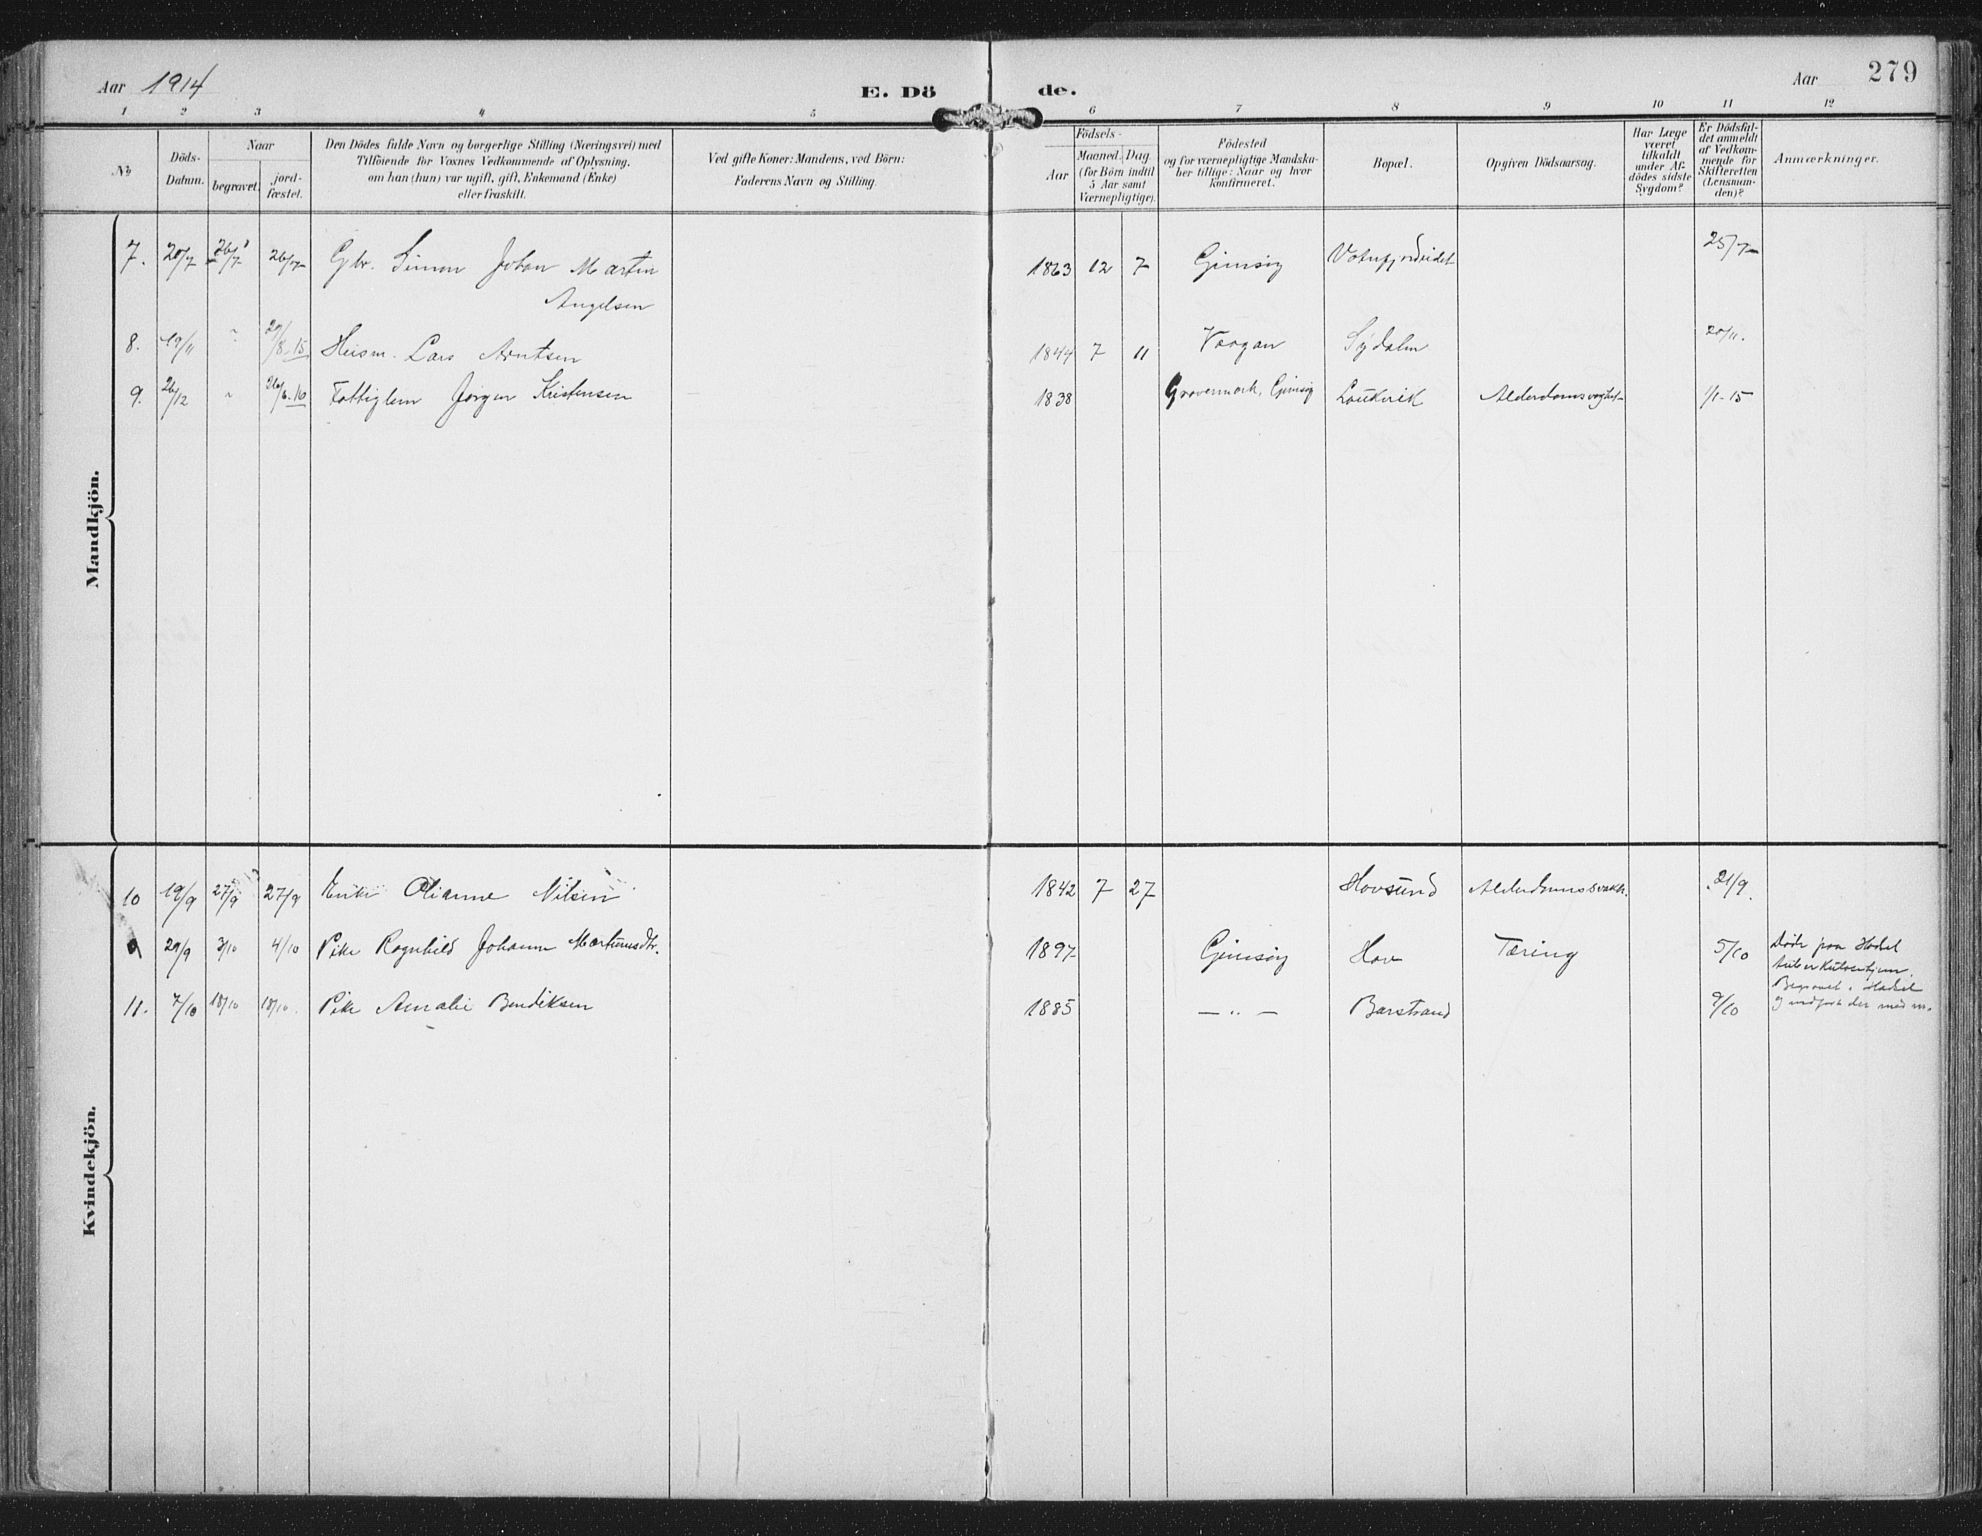 Aar 1914 E. Dö de. Aar 279
1 2 3 4 5 6 7 8 9 10 11 12
No
Döds-Datum.
Naar
begravet.
jord-fæstet.
Den Dödes fulde Navn og borgerlige Stilling (Næringsvei) med
Tilföiende for Voxnes Vedkommende af Oplysning,
om han (hun) var ugift, gift, Enkemand (Enke)
eller fraskilt.
Ved gifte Koner: Mandens, ved Börn:
Faderens Navn og Stilling.
Födsels-
Aar
Maaned. Dag
(for Börn indtil
5 Aar samt
Værnepligtige).
Födested
og for værnepligtige Mandska-
ber tillige: Naar og hvor
konfirmeret.
Bopæl.
Opgiven Dödsaarsag.
Har Læge
været
tilkaldt
under Af-
dödes sidste
Sygdom?
Er Dödsfal-
det anmeldt
af Vedkom-
mende for
Skifteretten
(Lensman-
den)?
Anmærkninger.
Mandkjön.
7. 20/7 26/7 26/7 Gbr. Simon Johan Martin 1863 12 7 Gimsöy Vatnfjordeidet 25/7
Angelsen
8. 19/11 " 29/8-15 Husm. Lars Arntsen 1844 7 11 Vaagan Sydalen 20/11.
9. 26/12 " 26/6-16 Fattiglem Jörgen Kristensen 1838 Gravermark, Gimsöy Laukvik 1/1-15
Kvindekjön.
10 19/9 27/9 27/9 Enke Olianne Nilsen 1842 7 27 Hovsund Alderdomssvakh. 21/9.
9 29/9 3/10 4/10 Pike Ragnhild Johanne Martinusdtr. 1897 Gimsöy Hov Tæring 5/10 Döde paa Hadsel
tuberkulosehjem.
Begravet i Hadsel
11. 7/10 18/10 18/10. Pike Amalie Bendiksen 1885 — " — Barstrand 9/10 og indfört der med nr.